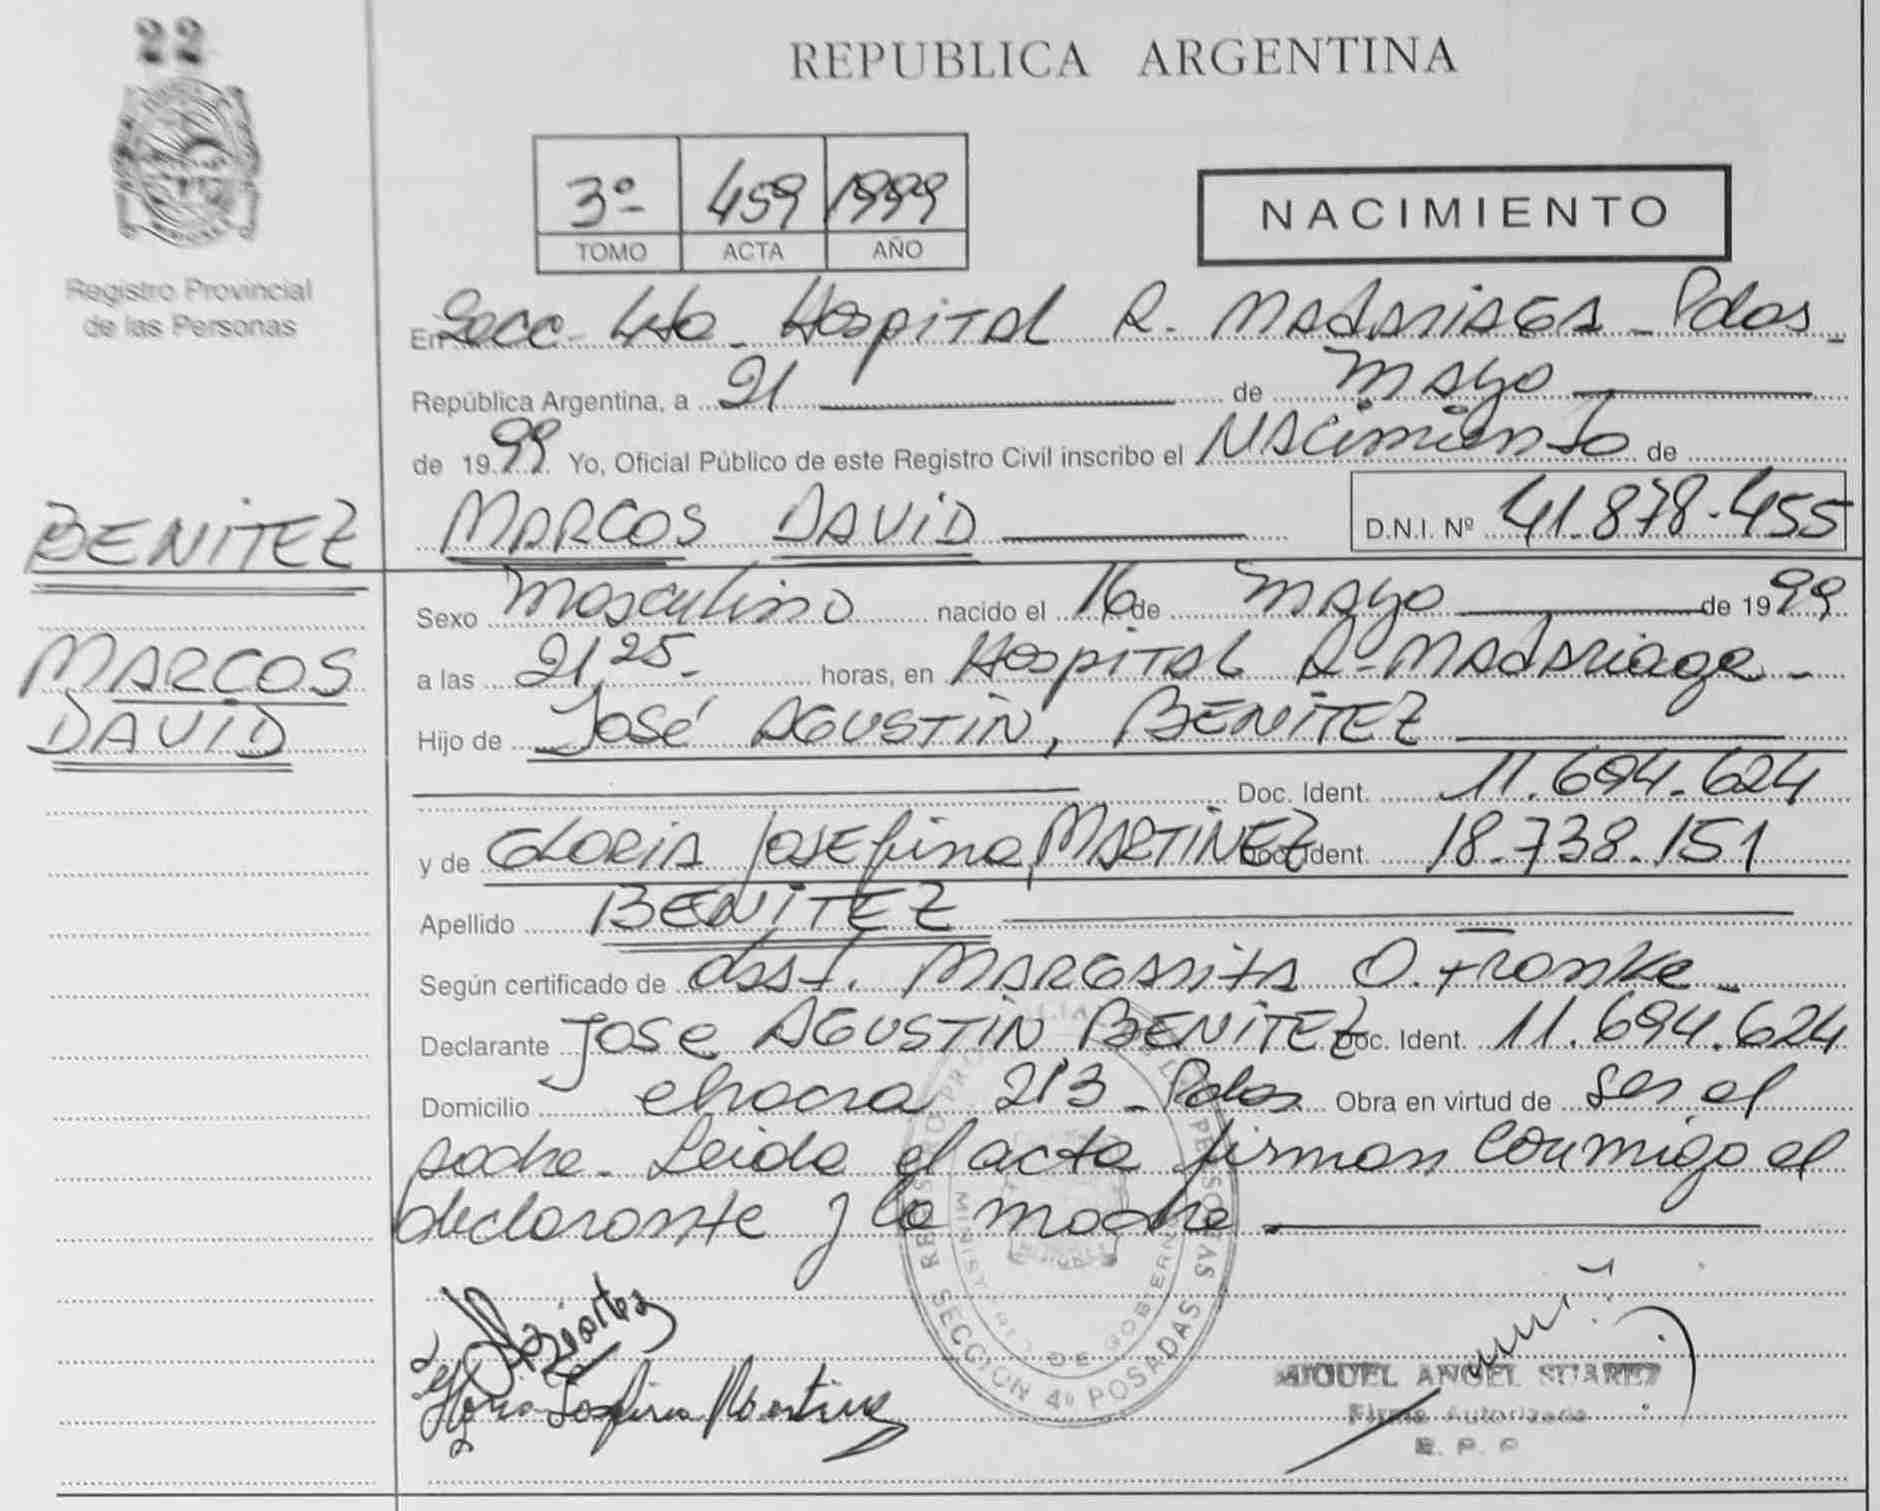 22
REPUBLICA ARGENTINA
3º 459 1999
TOMO ACTA AÑO
NACIMIENTO
Registro Provincial
de las Personas
En Secc. 4ta - Hospital R. Madariaga - Pdas -
República Argentina, a 21 de Mayo
de 1999 Yo, Oficial Público de este Registro Civil inscribo el Nacimiento de
BENITEZ
MARCOS DAVID D.N.I. Nº 41.878.455
Sexo Masculino nacido el 16 de Mayo de 1999
MARCOS
a las 21 25 - horas, en Hospital R. Madariaga -
DAVID
Hijo de José AGUSTIN, BENITEZ
Doc. Ident. 11.694.624
y de GLORIA Josefina, MARTINEZ Doc. Ident. 18.738.151
Apellido BENITEZ
Según certificado de obst. MARGARITA O. Franke -
Declarante JOSE AGUSTIN BENITEZ Doc. Ident. 11.694.624
Domicilio chacra 213 - Pdas Obra en virtud de ser el
padre - Leida el acta firman conmigo el
declarante y la madre
REGISTRO PROVINCIAL DE LAS PERSONAS
MINISTERIO DE GOBIERNO
SECCION 4º POSADAS
Gloria Josefina Martinez
MIGUEL ANGEL SUAREZ
Firma Autorizada
R. P. P